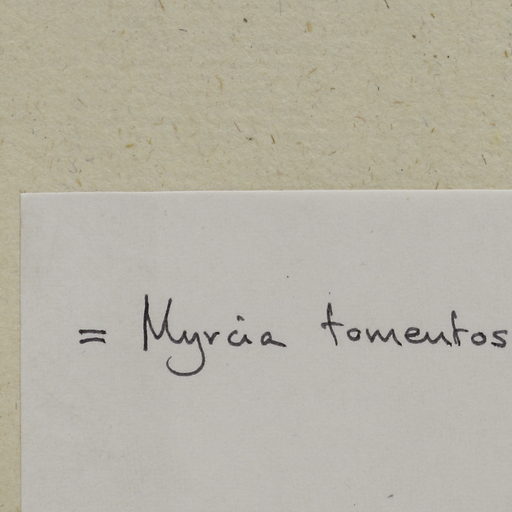 = Myrcia tomentos